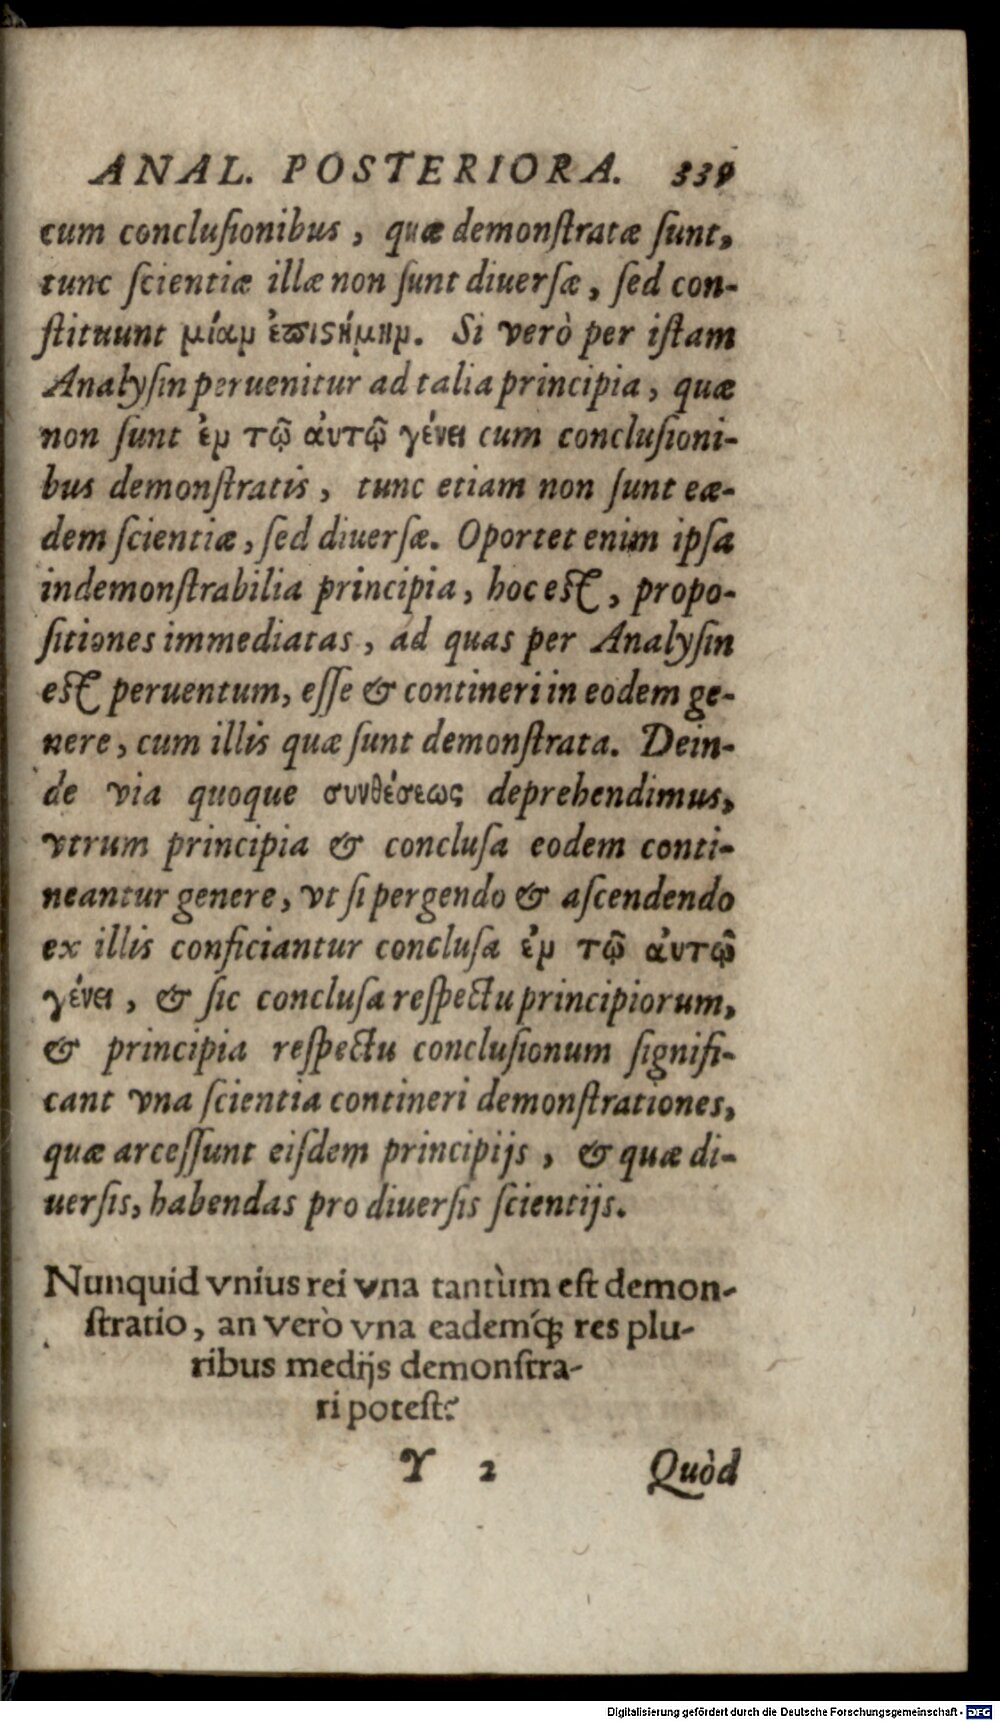 ANAL. POSTERIORA. 339
cum conclusionibus, quæ demonstratæ sunt,
tunc scientiæ illæ non sunt diuersæ, sed con-
stituunt μίαν ἐπιστήμην. Si verò per istam
Analysin peruenitur ad talia principia, quæ
non sunt ἐν τῷ ἀυτῷ γένει cum conclusioni-
bus demonstratis, tunc etiam non sunt eæ-
dem scientiæ, sed diuersæ. Oportet enim ipsa
indemonstrabilia principia, hoc est, propo-
sitiones immediatas, ad quas per Analysin
est peruentum, esse & contineri in eodem ge-
nere, cum illis quæ sunt demonstrata. Dein-
de via quoque συνθέσεως deprehendimus,
vtrum principia & conclusa eodem conti-
neantur genere, vt si pergendo & ascendendo
ex illis conficiantur conclusa ἐν τῷ ἀυτῷ
γένει, & sic conclusa respectu principiorum,
& principia respectu conclusionum signifi-
cant vna scientia contineri demonstrationes,
quæ arcessunt eisdem principijs, & quæ di-
uersis, habendas pro diuersis scientijs.
Nunquid vnius rei vna tantùm est demon-
stratio, an verò vna eademq́; res plu-
ribus medijs demonstra-
ri potest?
Y 2 Quòd
Digitalisierung gefördert durch die Deutsche Forschungsgemeinschaft - DFG